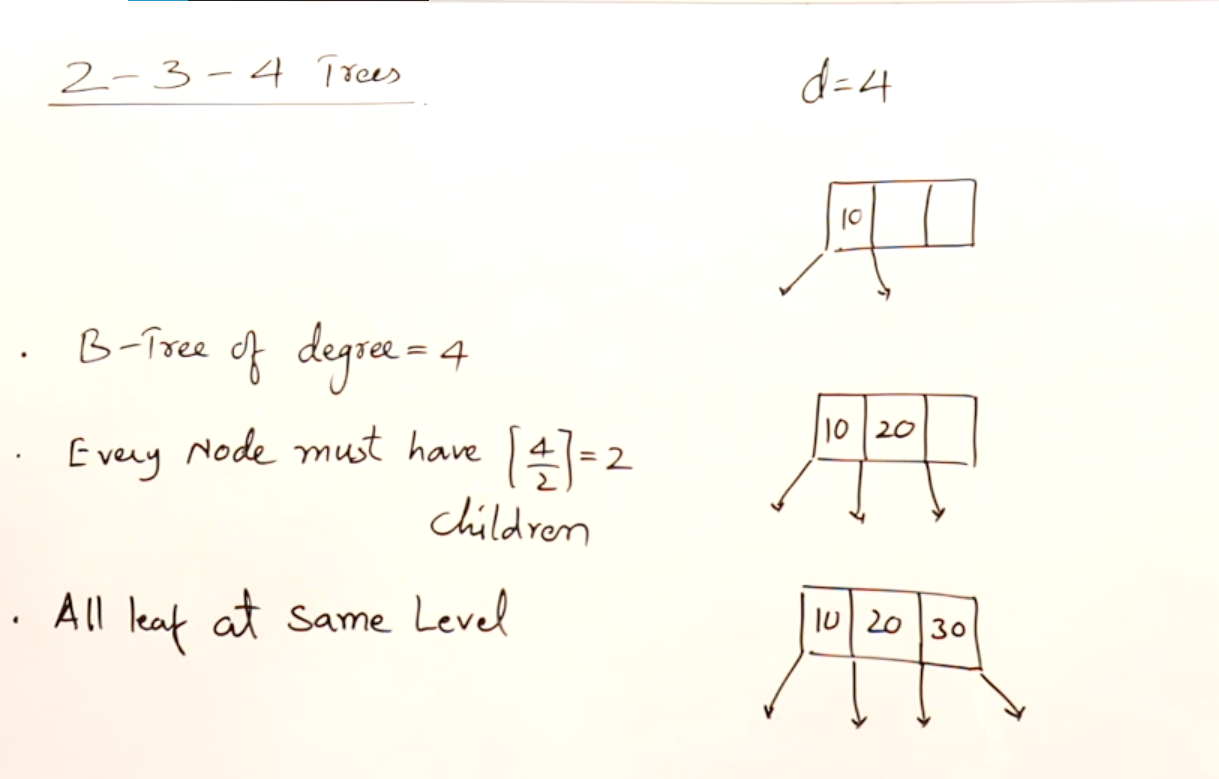 2-3-4 Trees
d=4
10
B-Tree of degree = 4
10 20
Every Node must have ⌈4/2⌉ = 2
children
All leaf at Same Level
10 20 30